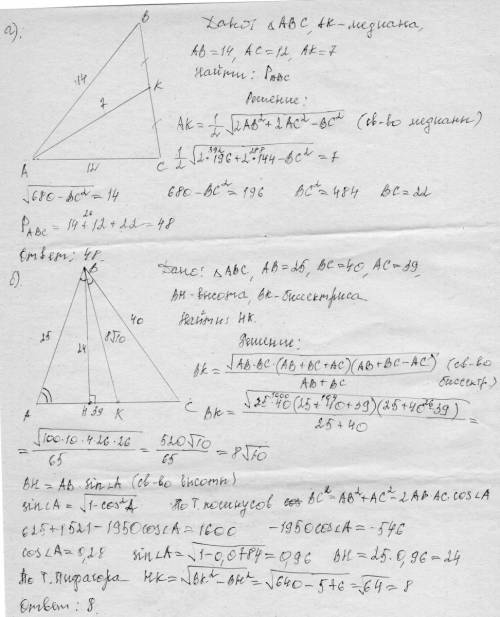 а).
Дано: △ABC, AK-медиана,
AB=14, AC=12, AK=7
Найти: P_ABC
Решение:
AK = 1/2 √(2AB²+2AC²−BC²) (св-во медианы)
1/2 √(2·196+2·144−BC²) = 7
392 288
B
14
K
7
A
12
C
√(680−BC²) = 14 680−BC² = 196 BC² = 484 BC = 22
26
P_ABC = 14+12+22 = 48
Ответ: 48.
б).
Дано: △ABC, AB=25, BC=40, AC=39,
BH-высота, BK-биссектриса
Найти: HK.
Решение:
BK = √(AB·BC·(AB+BC+AC)(AB+BC−AC)) / (AB+BC) (св-во биссектр)
BK = √(25·40(25+40+39)(25+40−39)) / (25+40) =
1000 104 26
B
25
24
8√10
40
A
H
39
K
C
= √(100·10·4·26·26) / 65 = 520√10 / 65 = 8√10
BH = AB·sin∠A (св-во высоты)
sin∠A = √(1−cos²A) По т. косинусов BC² = AB²+AC²−2AB·AC·cos∠A
625+1521−1950cos∠A = 1600 −1950cos∠A = −546
cos∠A = 0,28 sin∠A = √(1−0,0784) = 0,96 BH = 25·0,96 = 24
По т. Пифагора HK = √(BK²−BH²) = √(640−576) = √64 = 8
Ответ: 8.